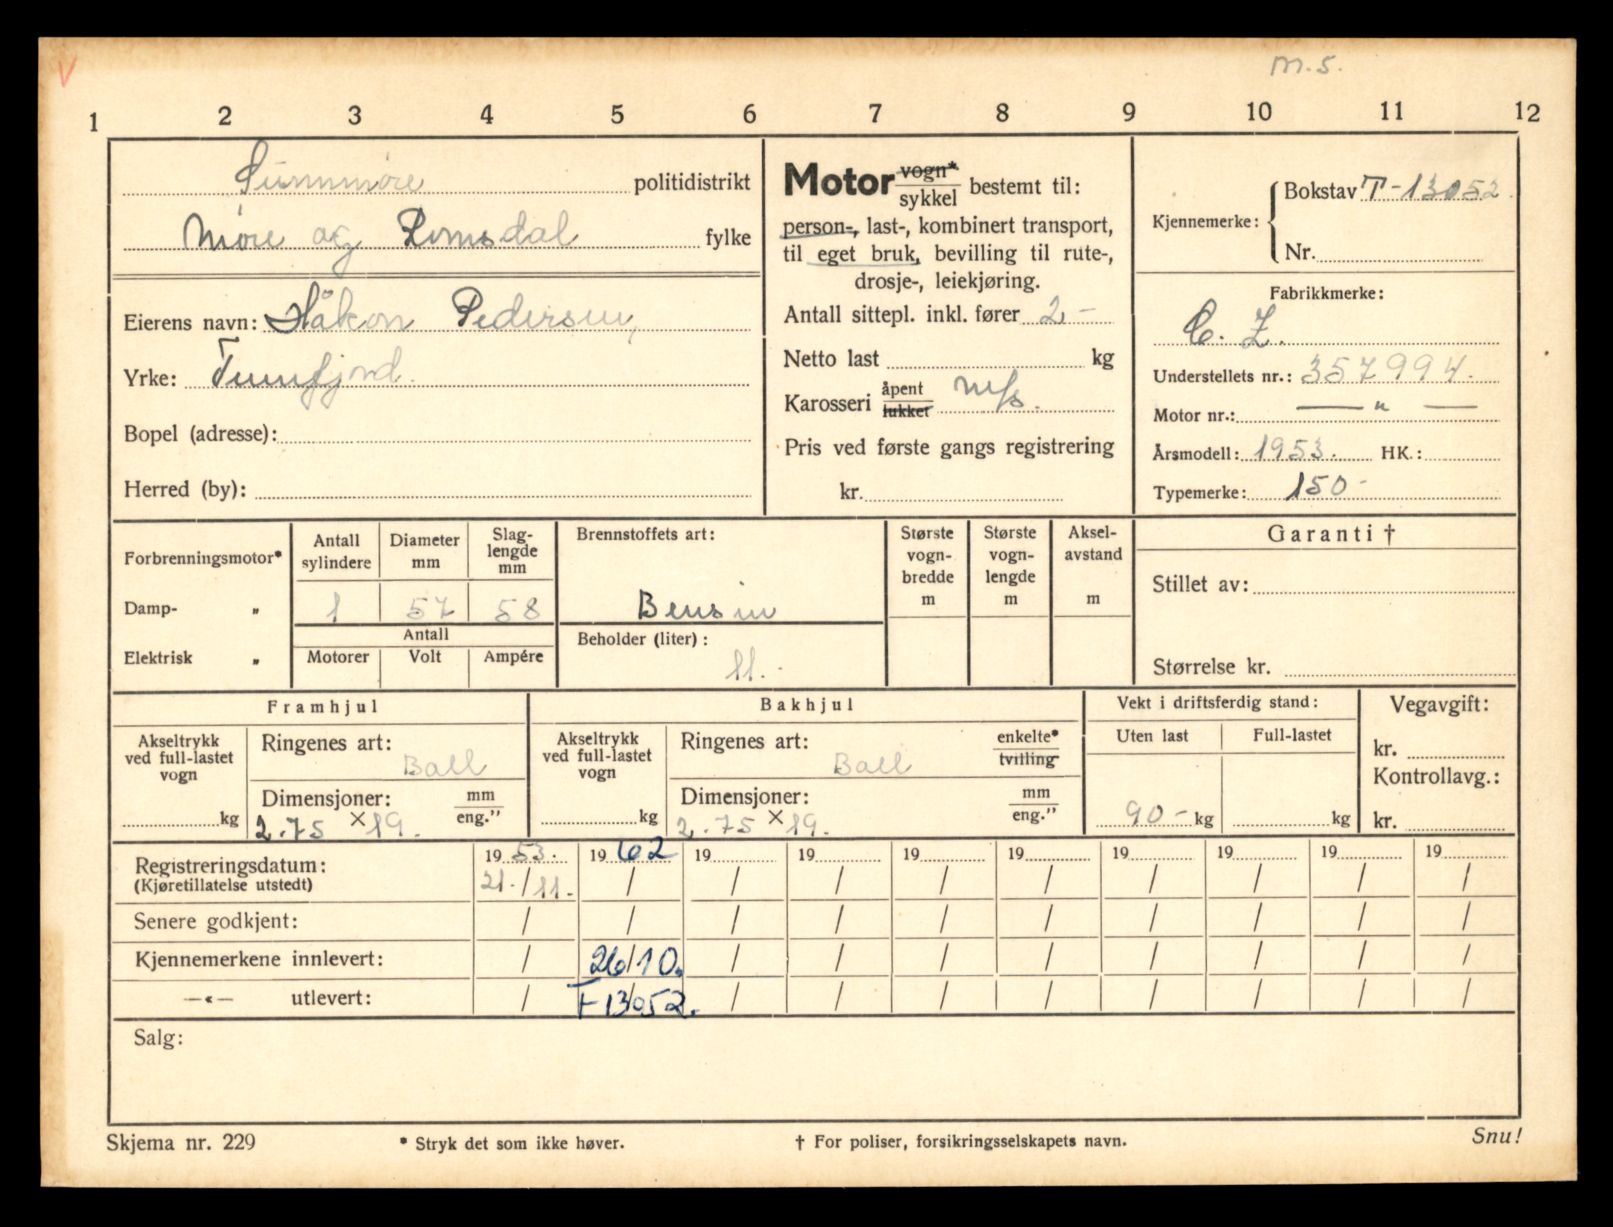 V
m.5.
1 2 3 4 5 6 7 8 9 10 11 12
Sunnmøre politidistrikt
Møre og Romsdal fylke
Eierens navn: Håkon Pedersen,
Yrke:
Bopel (adresse):
Herred (by):
Motor vogn* sykkel bestemt til:
person-, last-, kombinert transport,
til eget bruk, bevilling til rute-,
drosje-, leiekjøring.
Antall sittepl. inkl. fører 2 -
Netto last kg
Karosseri åpent lukket m/s.
Pris ved første gangs registrering
kr.
Kjennemerke: Bokstav T-13052.
Nr.
Fabrikkmerke:
C. Z.
Understellets nr.: 357994.
Motor nr.: — " —
Årsmodell: 1953. HK.:
Typemerke: 150-
Forbrenningsmotor*
Damp- „
Elektrisk „
Antall sylindere Diameter mm Slag-lengde mm
1 57 58
Antall
Motorer Volt Ampére
Brennstoffets art:
Bensin
Beholder (liter):
11.-
Største vogn-bredde m
Største vogn-lengde m
Aksel-avstand m
Garanti †
Stillet av:
Størrelse kr.
Framhjul
Akseltrykk ved full-lastet vogn
kg
Ringenes art:
Ball
Dimensjoner: mm eng.”
2.75 × 19.
Bakhjul
Akseltrykk ved full-lastet vogn
kg
Ringenes art: enkelte* tvilling
Ball
Dimensjoner: mm eng.”
2.75 × 19.
Vekt i driftsferdig stand:
Uten last Full-lastet
90- kg kg
Vegavgift:
kr.
Kontrollavg.:
kr.
Registreringsdatum: 1953. 1962 19 19 19 19 19 19 19 19
(Kjøretillatelse utstedt) 21./11. / / / / / / / / /
Senere godkjent: / / / / / / / / / /
Kjennemerkene innlevert: / 26/10. / / / / / / / /
—«— utlevert: / T-13052. / / / / / / / /
Salg:
Skjema nr. 229
* Stryk det som ikke høver.
† For poliser, forsikringsselskapets navn.
Snu!